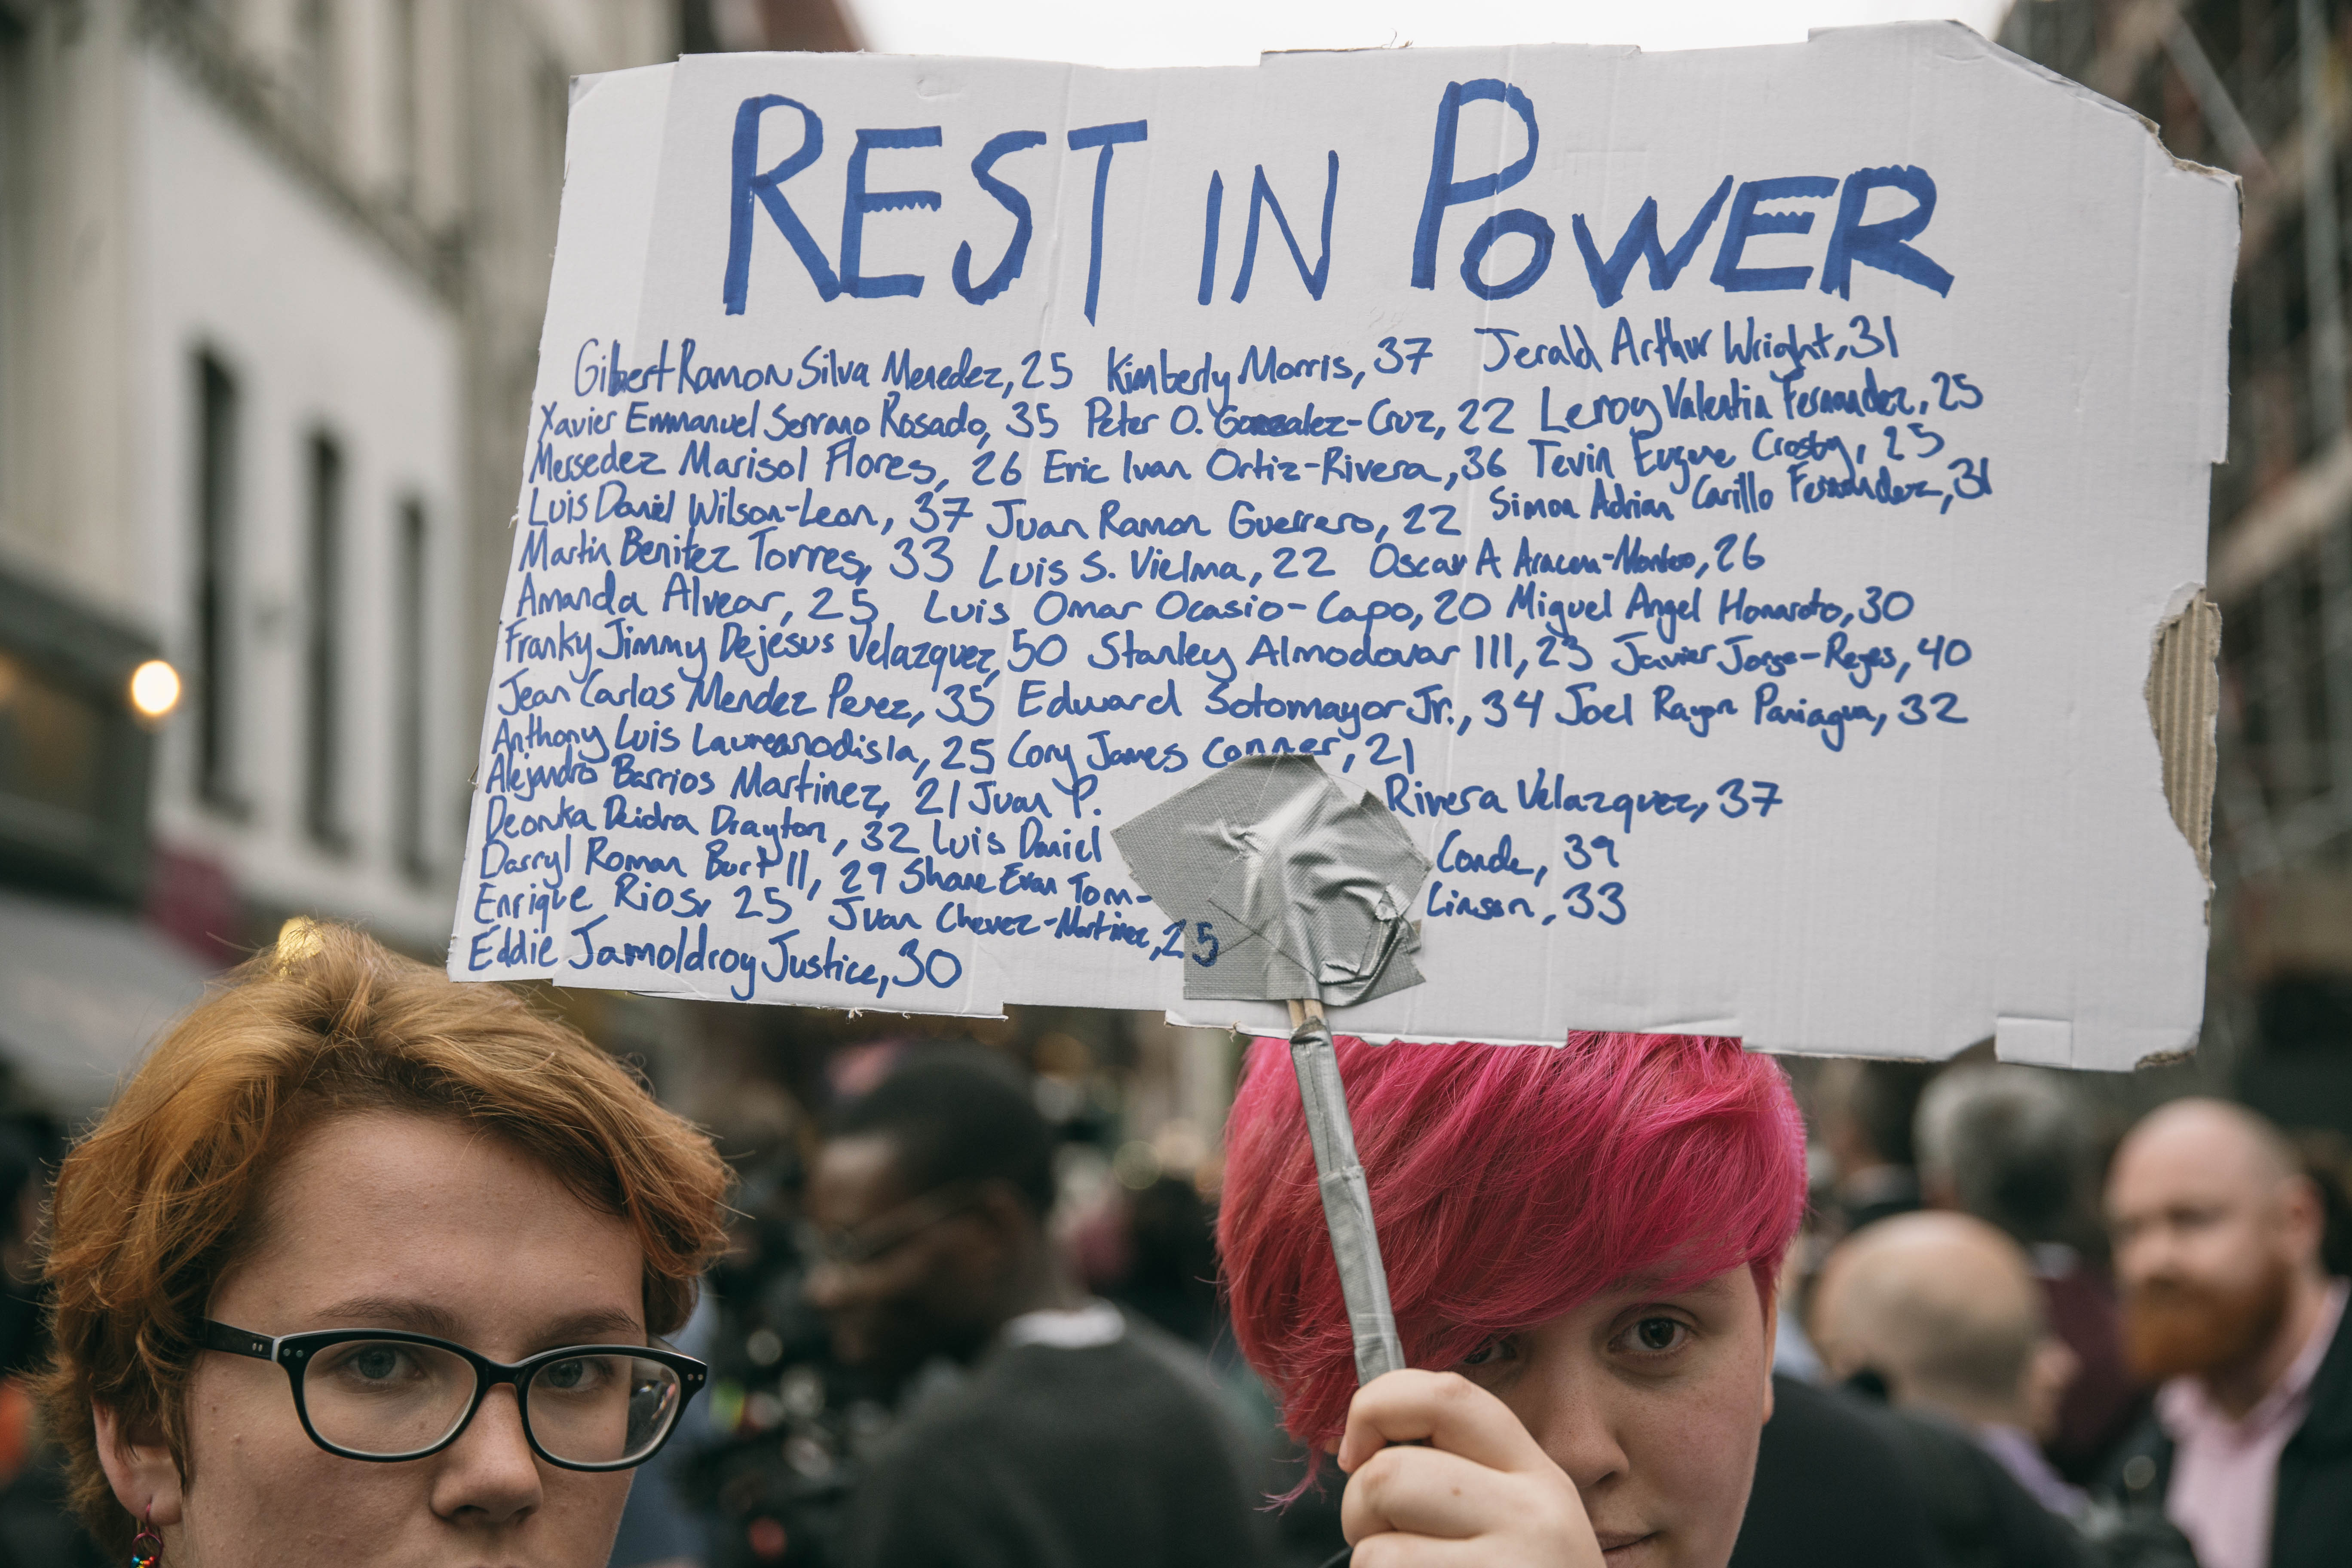 REST IN POWER
Gilbert Ramon Silva Menedez, 25 Kimberly Morris, 37 Jerald Arthur Wright, 31
Xavier Emmanuel Serrano Rosado, 35 Peter O. Gonzalez-Cruz, 22 Leroy Valentin Fernandez, 25
Mersedez Marisol Flores, 26 Eric Ivan Ortiz-Rivera, 36 Tevin Eugene Crosby, 25
Luis Daniel Wilson-Leon, 37 Juan Ramon Guerrero, 22 Simon Adrian Carillo Fernandez, 31
Martin Benitez Torres, 33 Luis S. Vielma, 22 Oscar A 26
Amanda Alvear, 25 Luis Omar Ocasio-Capo, 20 Miguel Angel Honaroto, 30
Franky Jimmy Dejesus Velazquez, 50 Stanley Almodovar III, 23 Javier Jorge-Reyes, 40
Jean Carlos Mendez Perez, 35 Edward Sotomayor Jr., 34 Joel Rayon Paniagua, 32
Anthony Luis Laureanodisla, 25 Cory James Conner, 21
Alejandro Barrios Martinez, 21 Juan P. Rivera Velazquez, 37
Deonka Deidra Drayton, 32 Luis Daniel Conde, 39
Darryl Roman Burt II, 29 Shane Evan Tom- Linson, 33
Enrique Rios, 25 Juan Chevez-Martinez, 25
Eddie Jamoldroy Justice, 30